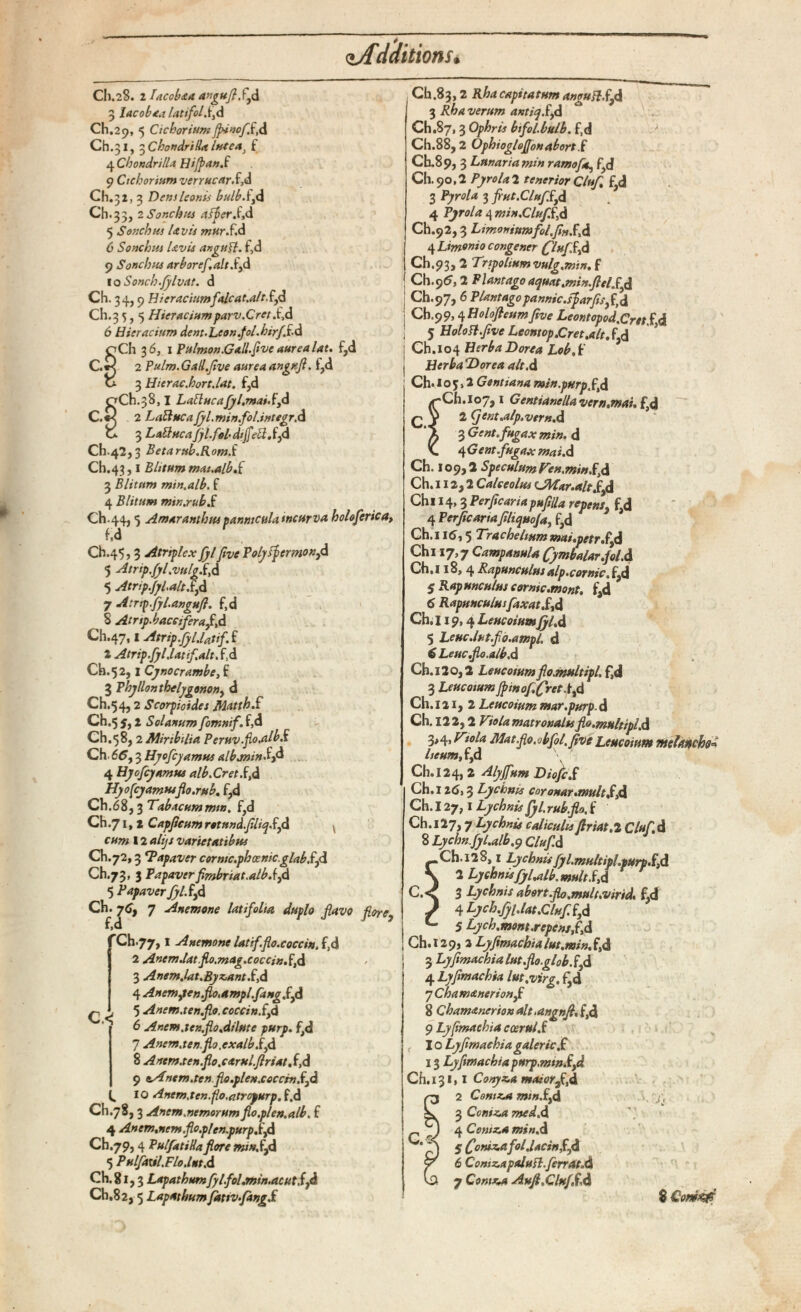 Additions.
Ch.28. 2 Iacobæa angust.f,d
3 Iacobæa latifol.f,d
Ch.29, 5 Cichorium spinos.f,d
Ch.31, 3 Chondrilla lutea, f
4 Chondrilla Hispan.f
9 Cichorium verrucar.f,d
Ch.32, 3 Dens leonis bulb.f,d
Ch.33, 2 Sonchus asper.f,d
5 Sonchus lævis mur.f,d
6 Sonchus lævis angust. f,d
9 Sonchus arboresc.alt.f,d
10 Sonch.sylvat. d
Ch. 34, 9 Hieracium falcat.alt.f,d
Ch.35, 5 Hieracium parv.Cret.f,d
6 Hieracium dent.Leon.fol.hirs.f.d
C. Ch 36, 1 Pulmon.Gall.sive aurea lat. f,d
2 Pulm.Gall.sive aurea angust. f,d
3 Hierac.hort.lat. f,d
C. Ch.38, 1 Lactuca syl.mai.f,d
2 Lactuca syl.min.fol.integr.d
3 Lactuca syl.fol.dissect.f,d
Ch.42, 3 Beta rub.Rom.f
Ch.43, 1 Blitum mai.alb.f
3 Blitum min.alb. f
4 Blitum min.rub.f
Ch.44, 5 Amaranthus pannicula incurva holoserica,
f,d
Ch.45, 3 Atriplex syl sive Polyspermon,d
5 Atrip.syl.vulg.f,d
5 Atrip.syl.alt.f,d
7 Atrip.syl.angust. f,d
8 Atrip.baccifera,f,d
Ch.47, 1 Atrip.syl.latif. f
2 Atrip.syl.latif.alt.f,d
Ch.52, 1 Cynocrambe, f
3 Phyllon thelygonon, d
Ch.54, 2 Scorpioides Matth.f
Ch.55, 2 Solanum somnif. f,d
Ch.58, 2 Miribilia Peruv.flo.alb.f
Ch.66, 3 Hyoscyamus alb.min.f,d
4 Hyoscyamus alb.Cret.f,d
Hyoscyamus flo.rub. f,d
Ch.68, 3 Tabacum min. f,d
Ch.71, 2 Capsicum rotund.siliq.f,d
cum 12 alijs varietatibus
Ch.72, 3 Papaver cornic.phœnic.glab.f,d
Ch.73, 3 Papaver fimbriat.alb.f,d
5 Papaver syl.f,d
Ch. 76, 7 Anemone latifolia duplo flavo flore,
f,d
C. Ch.77, 1 Anemone latif.flo.coccin. f,d
2 Anem.lat.flo.mag.coccin.f,d
3 Anem.lat.Byzant.f,d
4 Anem.ten.flo.ampl.sang.f,d
5 Anem.ten.flo.coccin.f,d
6 Anem.ten.flo.dilute purp. f,d
7 Anem.ten.flo.exalb.f,d
8 Anem.ten.flo.cærul.striat.f,d
9 Anem.ten.flo.plen.coccin.f,d
10 Anem.ten.flo.atropurp. f,d
Ch.78, 3 Anem.nemorum flo.plen.alb. f
4 Anem.nem.flo.plen.purp.f,d
Ch.79, 4 Pulsatilla flore min.f,d
5 Pulsatil.Flo.lut.d
Ch.81, 3 Lapathum syl.fol.min.acut.f,d
Ch.82, 5 Lapathum sativ.sang.f
Ch.83, 2 Rha capitatum angust.f,d
3 Rha verum antiq.f,d
Ch.87, 3 Ophris bifol.bulb. f,d
Ch.88, 2 Ophioglosson abort.f
Ch.89, 3 Lunaria min ramosa, f,d
Ch.90, 2 Pyrola 2 tenerior Clus. f,d
3 Pyrola 3 frut.Clus.f,d
4 Pyrola 4 min.Clus.f,d
Ch.92, 3 Limonium fol.sin.f,d
4 Limonio congener Clus.f,d
Ch.93, 2 Tripolium vulg.min. f
Ch.96, 2 Plantago aquat.min.stel.f,d
Ch.97, 6 Plantago pannic.sparsis,f,d
Ch.99, 4 Holosteum sive Leontopod.Cret.f,d
5 Holost.sive Leontop.Cret.alt.f,d
Ch.104 Herba Dorea Lob.f
Herba Dorea alt.d
Ch.105, 2 Gentiana min.purp.f,d
C. Ch.107, 1 Gentianella vern.mai. f,d
2 Gent.alp.vern.d
3 Gent.fugax min. d
4 Gent.fugax mai.d
Ch. 109, 2 Speculum Ven.min.f,d
Ch.112, 2 Calceolus Mar.alt.f,d
Ch114, 3 Persicaria pusilla repens, f,d
4 Persicaria siliquosa, f,d
Ch.116, 5 Trachelium mai.petr.f,d
Ch117, 7 Campanula Cymbalar.fol.d
Ch.118, 4 Rapunculus alp.cornic. f,d
5 Rapunculus cornic.mont. f,d
6 Rapunculus saxat.f,d
Ch.119, 4 Leucoium syl.d
5 Leuc.lut.flo.ampl. d
6 Leuc.flo.alb.d
Ch.120, 2 Leucoium flo.multipl. f,d
3 Leucoium spinos.Cret.f,d
Ch.121, 2 Leucoium mar.purp.d
Ch.122, 2 Viola matronalis flo.multipl.d
3,4, Viola Mat.flo.obsol.sive Leucoium melancho-
licum,f,d
Ch.124, 2 Alyssum Diosc.f
Ch.126, 3 Lychnis coronar.mult.f,d
Ch.127, 1 Lychnis syl.rub.flo.f
Ch.127, 7 Lychnis caliculis striat.2 Clus. d
8 Lychn.syl.alb.9 Clus.d
C. Ch.128, 1 Lychnis syl.multipl.purp.f,d
2 Lychnis syl.alb.mult.f,d
3 Lychnis abort.flo.mult.virid. f,d
4 Lych.syl.lat.Clus.f,d
5 Lych.mont.repens,f,d
Ch.129, 2 Lysimachia lut.min.f,d
3 Lysimachia lut.flo.glob.f,d
4 Lysimachia lut.virg. f,d
7 Chamænerion,f
8 Chamænerion alt.angust. f,d
9 Lysimachia cœrul.f
10 Lysimachia galeric.f
13 Lysimachia purp.min.f,d
C. Ch.131, 1 Conyza maior,f,d
2 Coniza min.f,d
3 Coniza med.d
4 Coniza min.d
5 Coniza fol.lacin.f,d
6 Coniza palust.serrat.d
7 Coniza Aust.Clus.f.d
8 Coniza